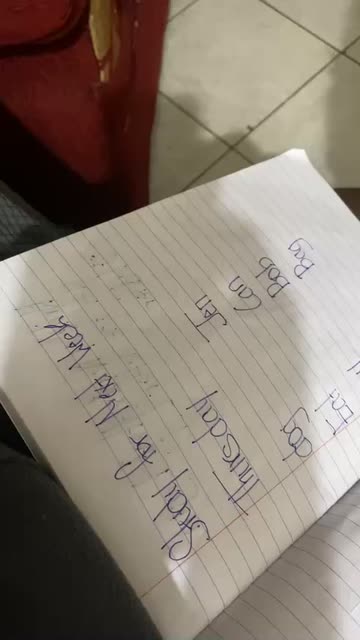 Study for Next Week
Thursday Jen
Can
dog Bob
Bag